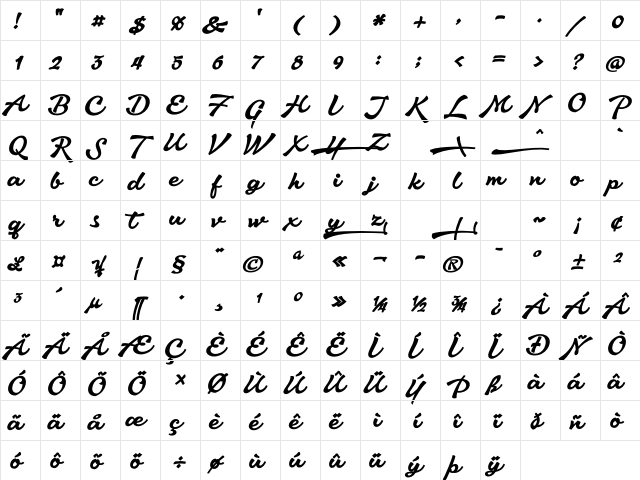 ! " # $ % & ' ( ) * + , - . / 0
1 2 3 4 5 6 7 8 9 : ; < = > ? @
A B C D E F G H I J K L M N O P
Q R S T U V W X Y Z \ ^ `
a b c d e f g h i j k l m n o p
q r s t u v w x y z | ~ ¡ ¢
£ ¤ ¥ ¦ § ¨ © ª « ¬ - ® ¯ ° ± ²
³ ´ µ ¶ · ¸ ¹ º » ¼ ½ ¾ ¿ À Á Â
Ã Ä Å Æ Ç È É Ê Ë Ì Í Î Ï Ð Ñ Ò
Ó Ô Õ Ö × Ø Ù Ú Û Ü Ý Þ ß à á â
ã ä å æ ç è é ê ë ì í î ï ð ñ ò
ó ô õ ö ÷ ø ù ú û ü ý þ ÿ